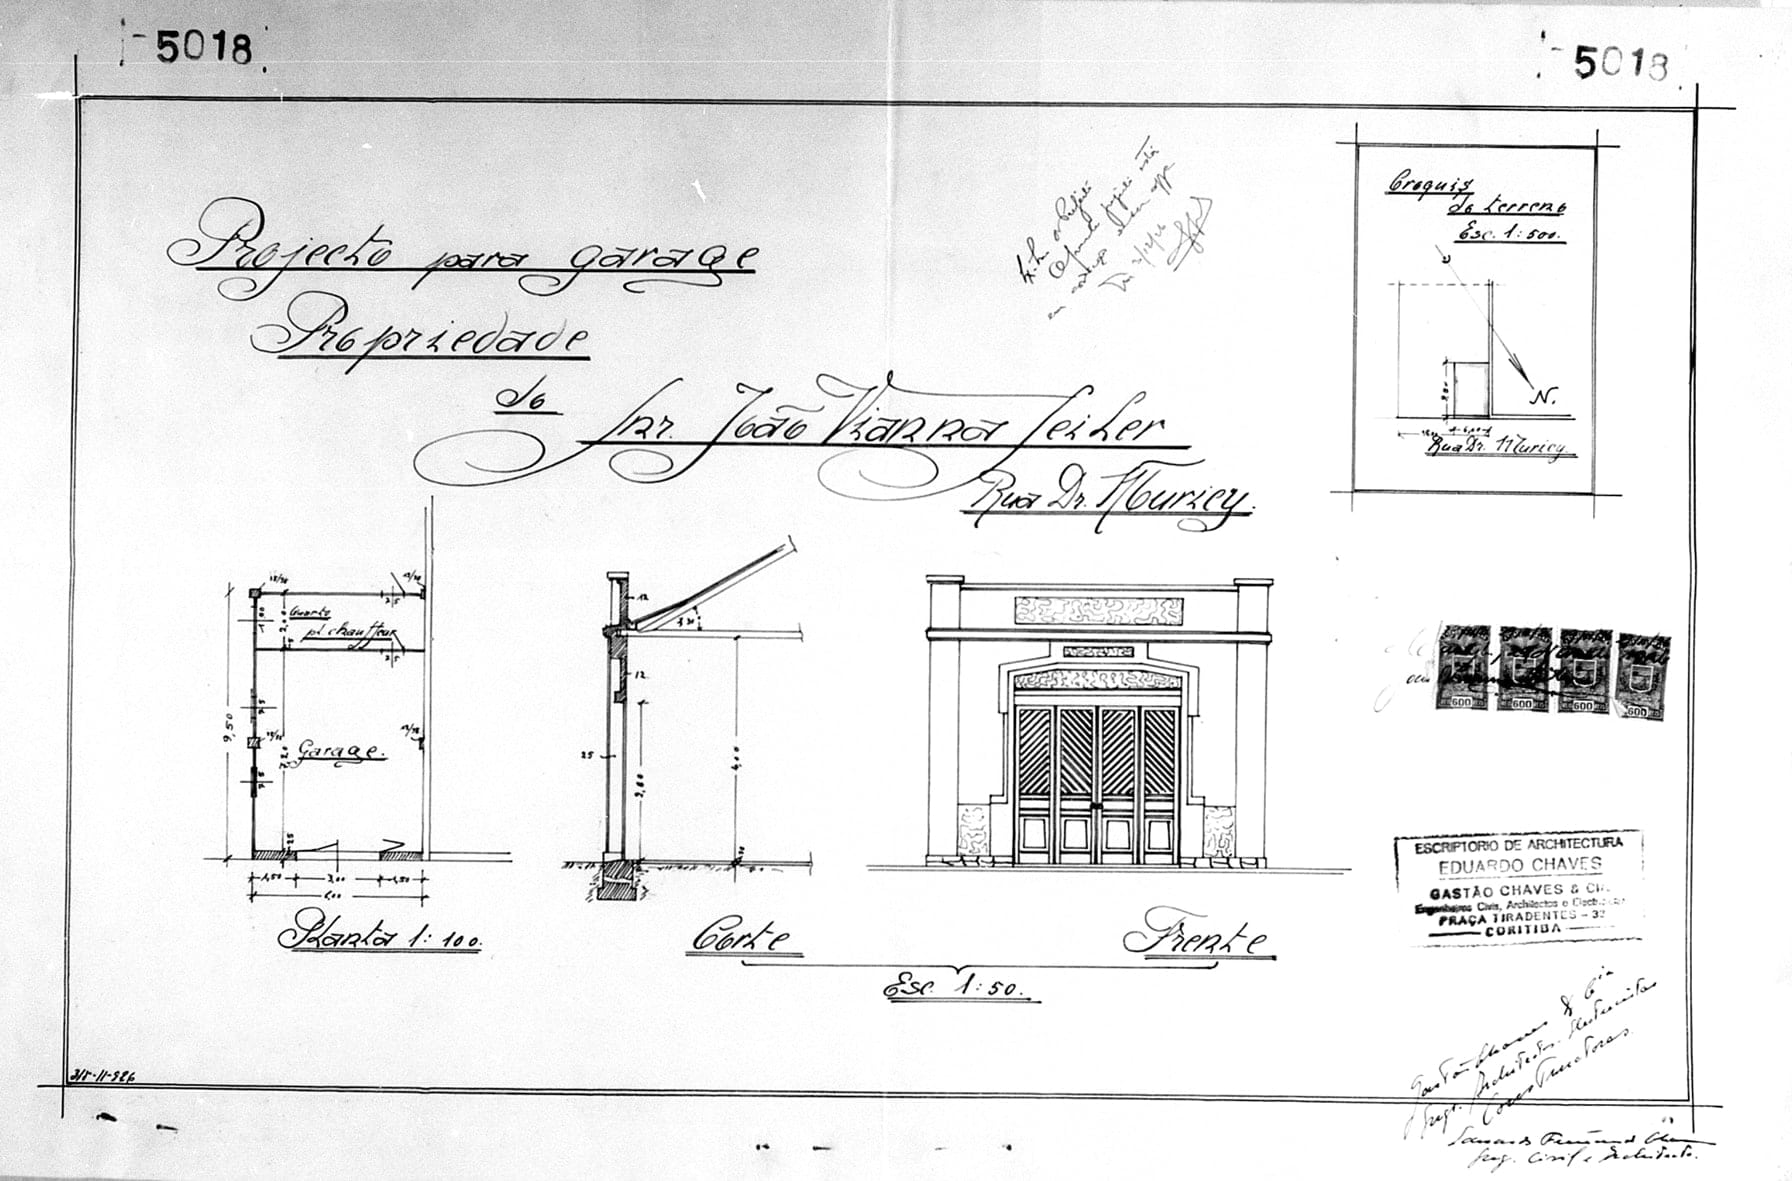 5018
5018
Projecto para garage
Propriedade
do
Snr. João Vianna Seiler
Rua Dr. Muricy.
Croquis
do terreno
Esc. 1:500.
N.
Rua Dr. Muricy
Quarto
pª chauffeur
Garage.
9,50
2,00
7,20
25
1,50
3,00
1,50
6,00
Planta 1:100.
12
12
25
2,80
4,00
Corte
Frente
Esc. 1:50.
600
600
600
600
ESCRIPTORIO DE ARCHITECTURA
EDUARDO CHAVES
GASTÃO CHAVES & CIA.
Engenheiros Civis, Architectos e
PRAÇA TIRADENTES - 32
CORITIBA
Gastão Chaves & Cia
Engs. Architectos. Electricistas
Constructores.
Eduardo Fernando Chaves
Eng. Civil e Architecto.